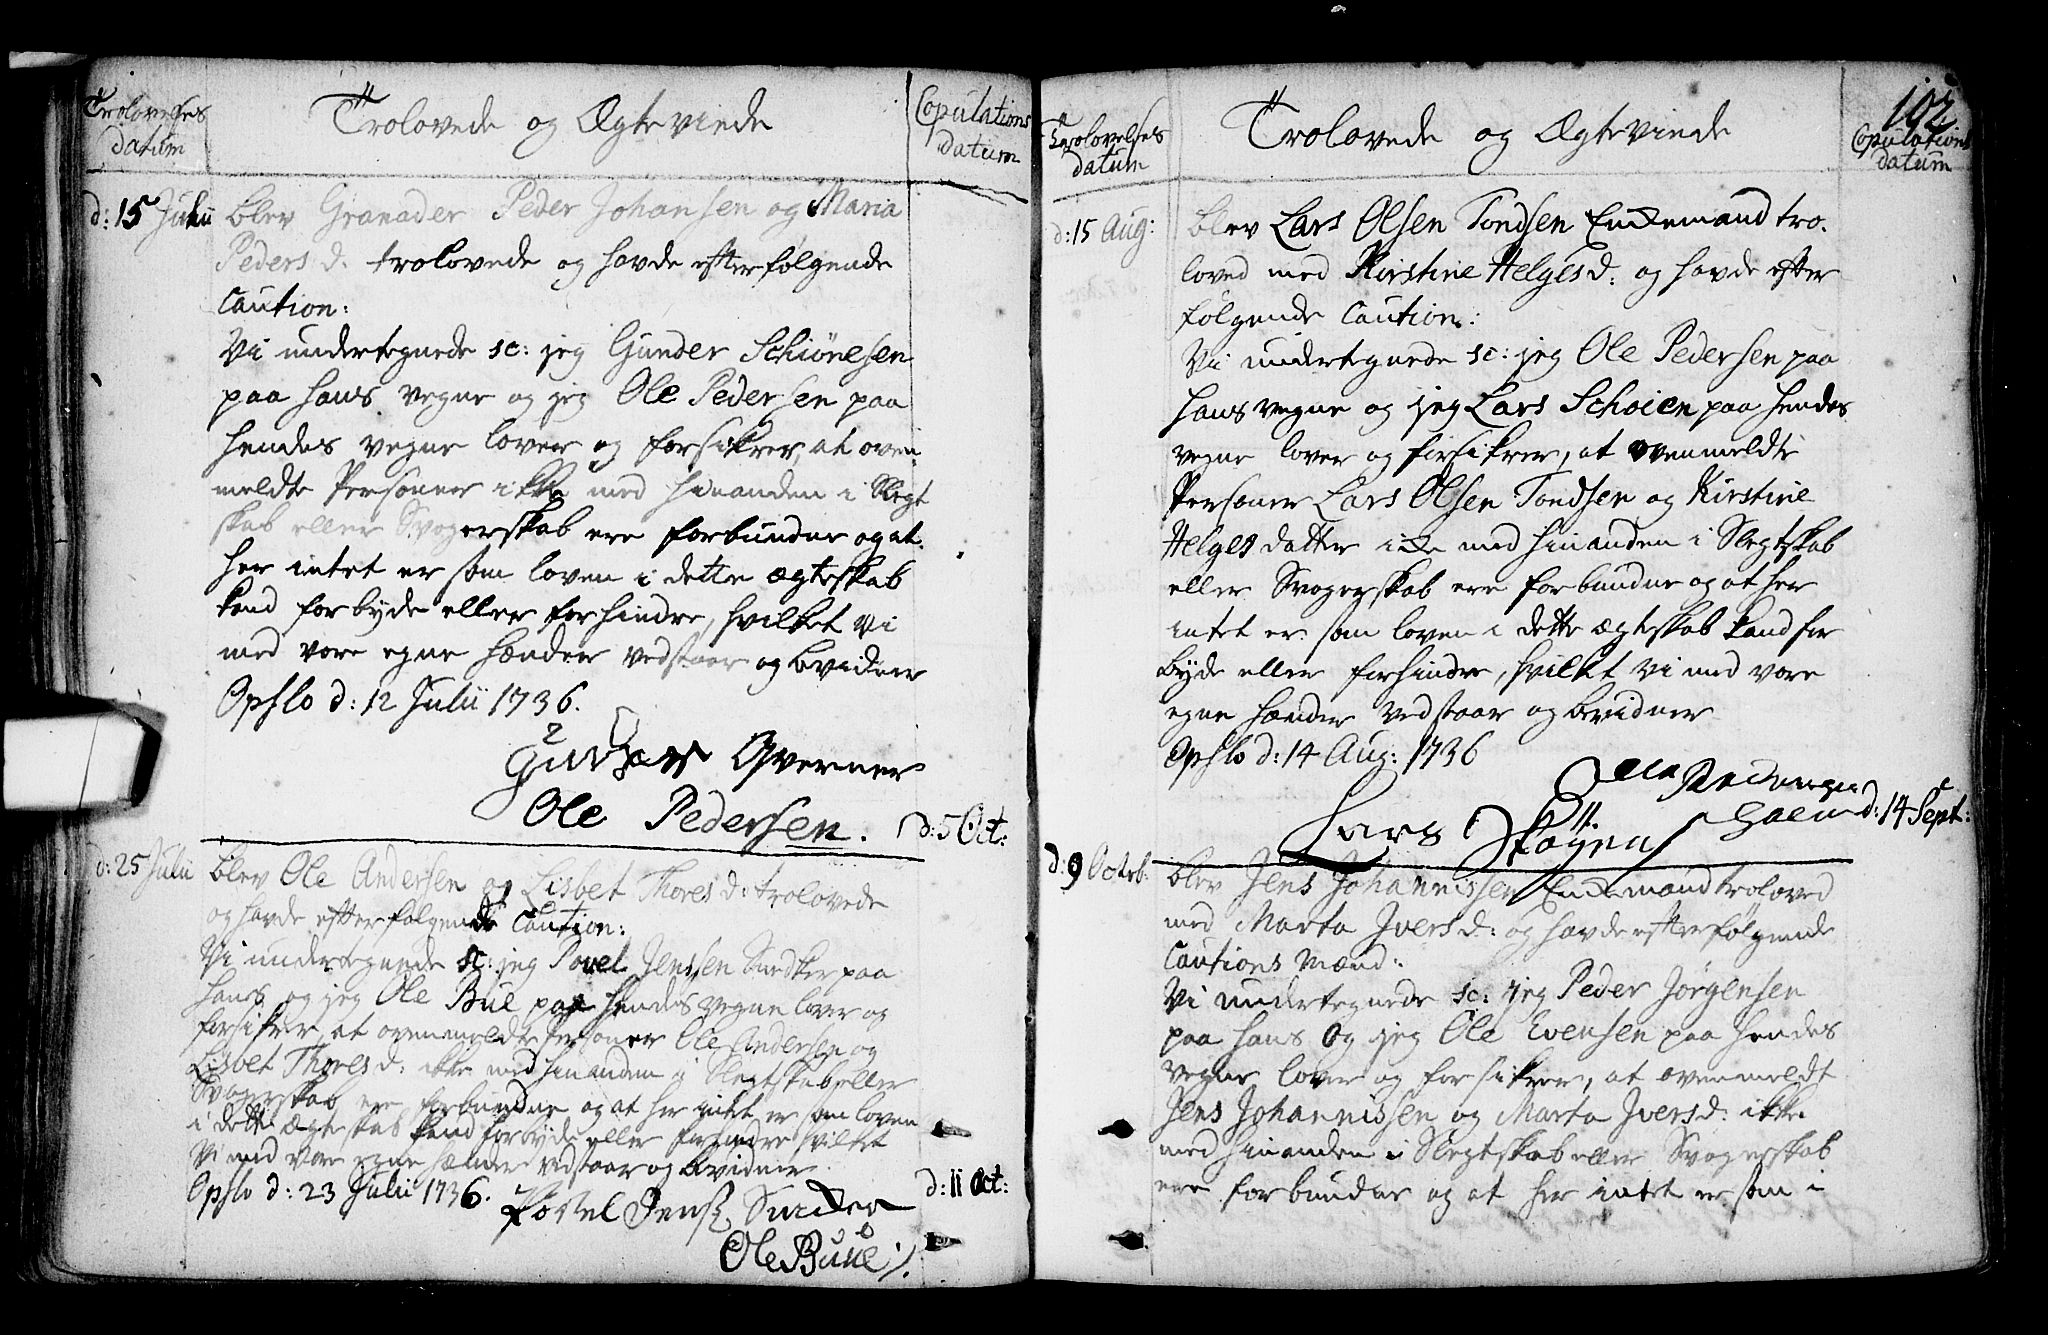 Trolovelses
datum
Trolovede og Ægteviede
Copulations
datum
d: 15 Julii
blev Granader Peder Johansen og Maria
Peders d. trolovede og havde efterfølgende
Caution:
Vi undertegnede sc: jeg Gunder Schiönesen
paa hans vegne og jeg Ole Pedersen paa
hendes vegne lover og forsikrer, at oven
meldte Personer ikke med hinanden i Slegt
skab eller Svogerskab ere forbundne og at
her intet er som loven i dette ægteskab
kand forbyde eller forhindre, hvilket vi
med vore egne hænder vedstaar og bevidner
Opslo d: 12 Julii 1736.
Ole Pedersen.
d: 5 Oct:
d: 25 Julii
blev Ole Andersen og Lisbet Thores d: trolovede
og havde efterfølgende Caution:
Vi undertegnede sc: jeg Povel Jenssen Snedker paa
hans og jeg Ole Bue paa hendes vegne lover og
forsikrer at ovenmeldte Personer Ole Andersen og
Lisbet Thores d: ikke med hinanden i Slegtskab eller
Svogerskab ere forbundne og at her intet er som loven
i dette ægteskab kand forbyde eller forhindre hvilket
Vi med vore egne hænder vedstaar og bevidner.
Opslo d: 23 Julii 1736.
Povel Jens
Ole Buue
d: 11 Oct:
102
Trolovelses
datum
Trolovede og Ægteviede
Copulations
datum
d: 15 Aug:
blev Lars Olsen Tondsen Enkemand tro-
loved med Kirstine Helges d: og havde efter
følgende Caution:
Vi undertegnede sc: jeg Ole Pedersen paa
hans vegne og jeg Lars Schøien paa hendes
vegne lover og forsikrer, at ovenmeldte
Personer Lars Olsen Tondsen og Kirstine
Helges datter icke med hinanden i Slegtskab
eller Svogerskab ere forbundne og at her
intet er som loven i dette ægteskab kand for
byde eller forhindre, hvilket vi med vore
egne hænder vedstaar og bevidner
Opslo d: 14 Aug: 1736
Lars Skøyen
d: 14 Sept:
d: 9 Octob:
blev Jens Johannissen Enkemand troloved
med Marta Ivers d: og havde efterfølgende
Cautions Mænd:
Vi undertegnede sc: jeg Peder Jörgensen
paa hans og jeg Ole Evensen paa hendes
vegne lover og forsikrer, at ovenmeldt
Jens Johannissen og Marta Ivers d: ikke
med hinanden i Slegtskab eller Svogerskab
ere forbundne og at her intet er som i